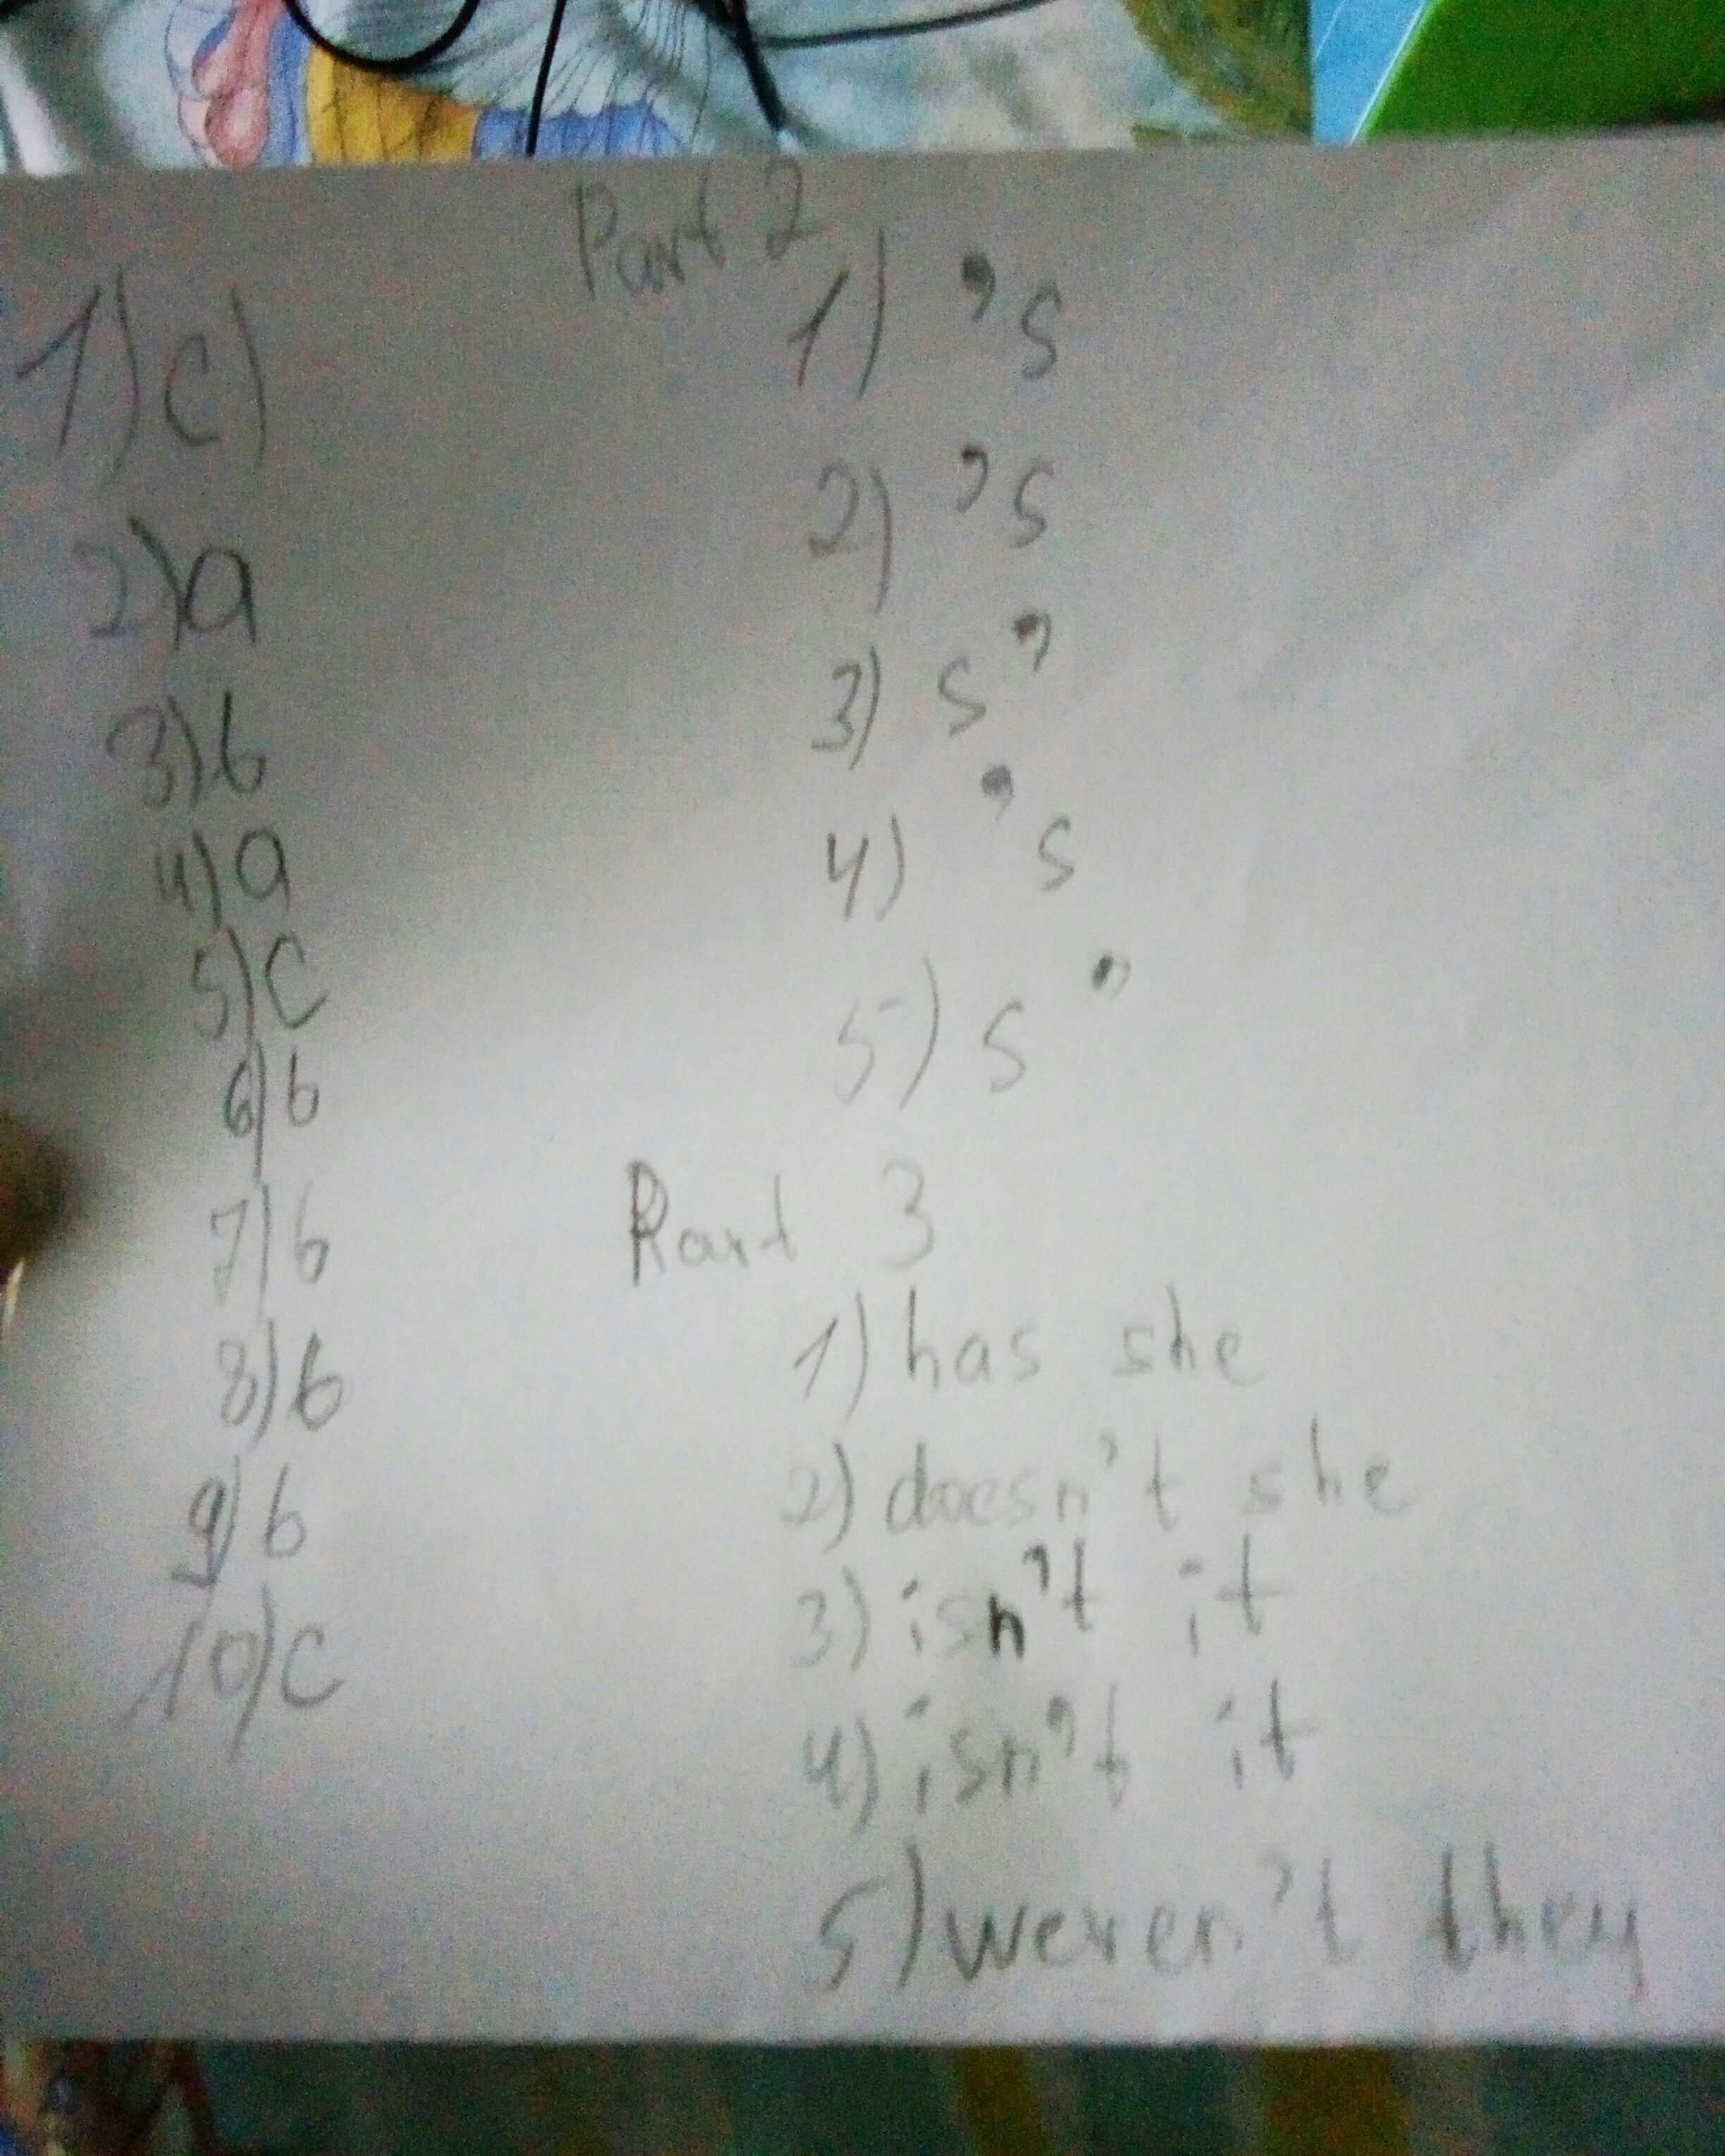 1) c)
2) a
3) b
4) a
5) c
6) b
7) b
8) b
9) b
10) c
Part 2
1) 's
2) 's
3) s'
4) 's
5) s'
Part 3
1) has she
2) doesn't she
3) isn't it
4) isn't it
5) weren't they